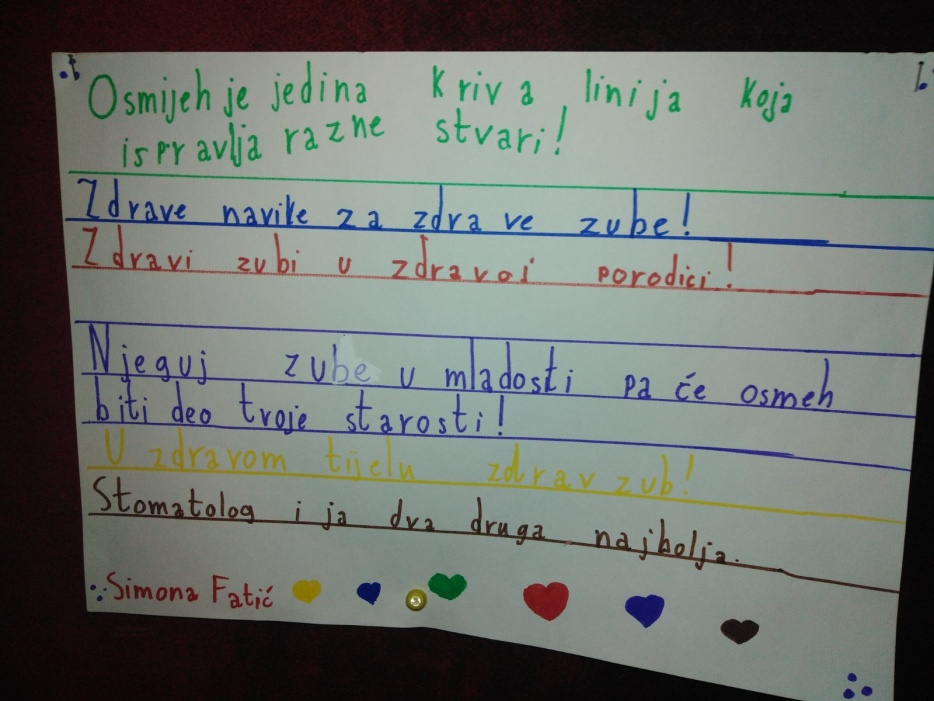 Osmijeh je jedina kriva linija koja
ispravlja razne stvari!
Zdrave navike za zdrave zube!
Zdravi zubi u zdravoj porodici!
Njeguj zube u mladosti pa će osmeh
biti deo tvoje starosti!
U zdravom tijelu zdrav zub!
Stomatolog i ja dva druga najbolja.
Simona Fatić